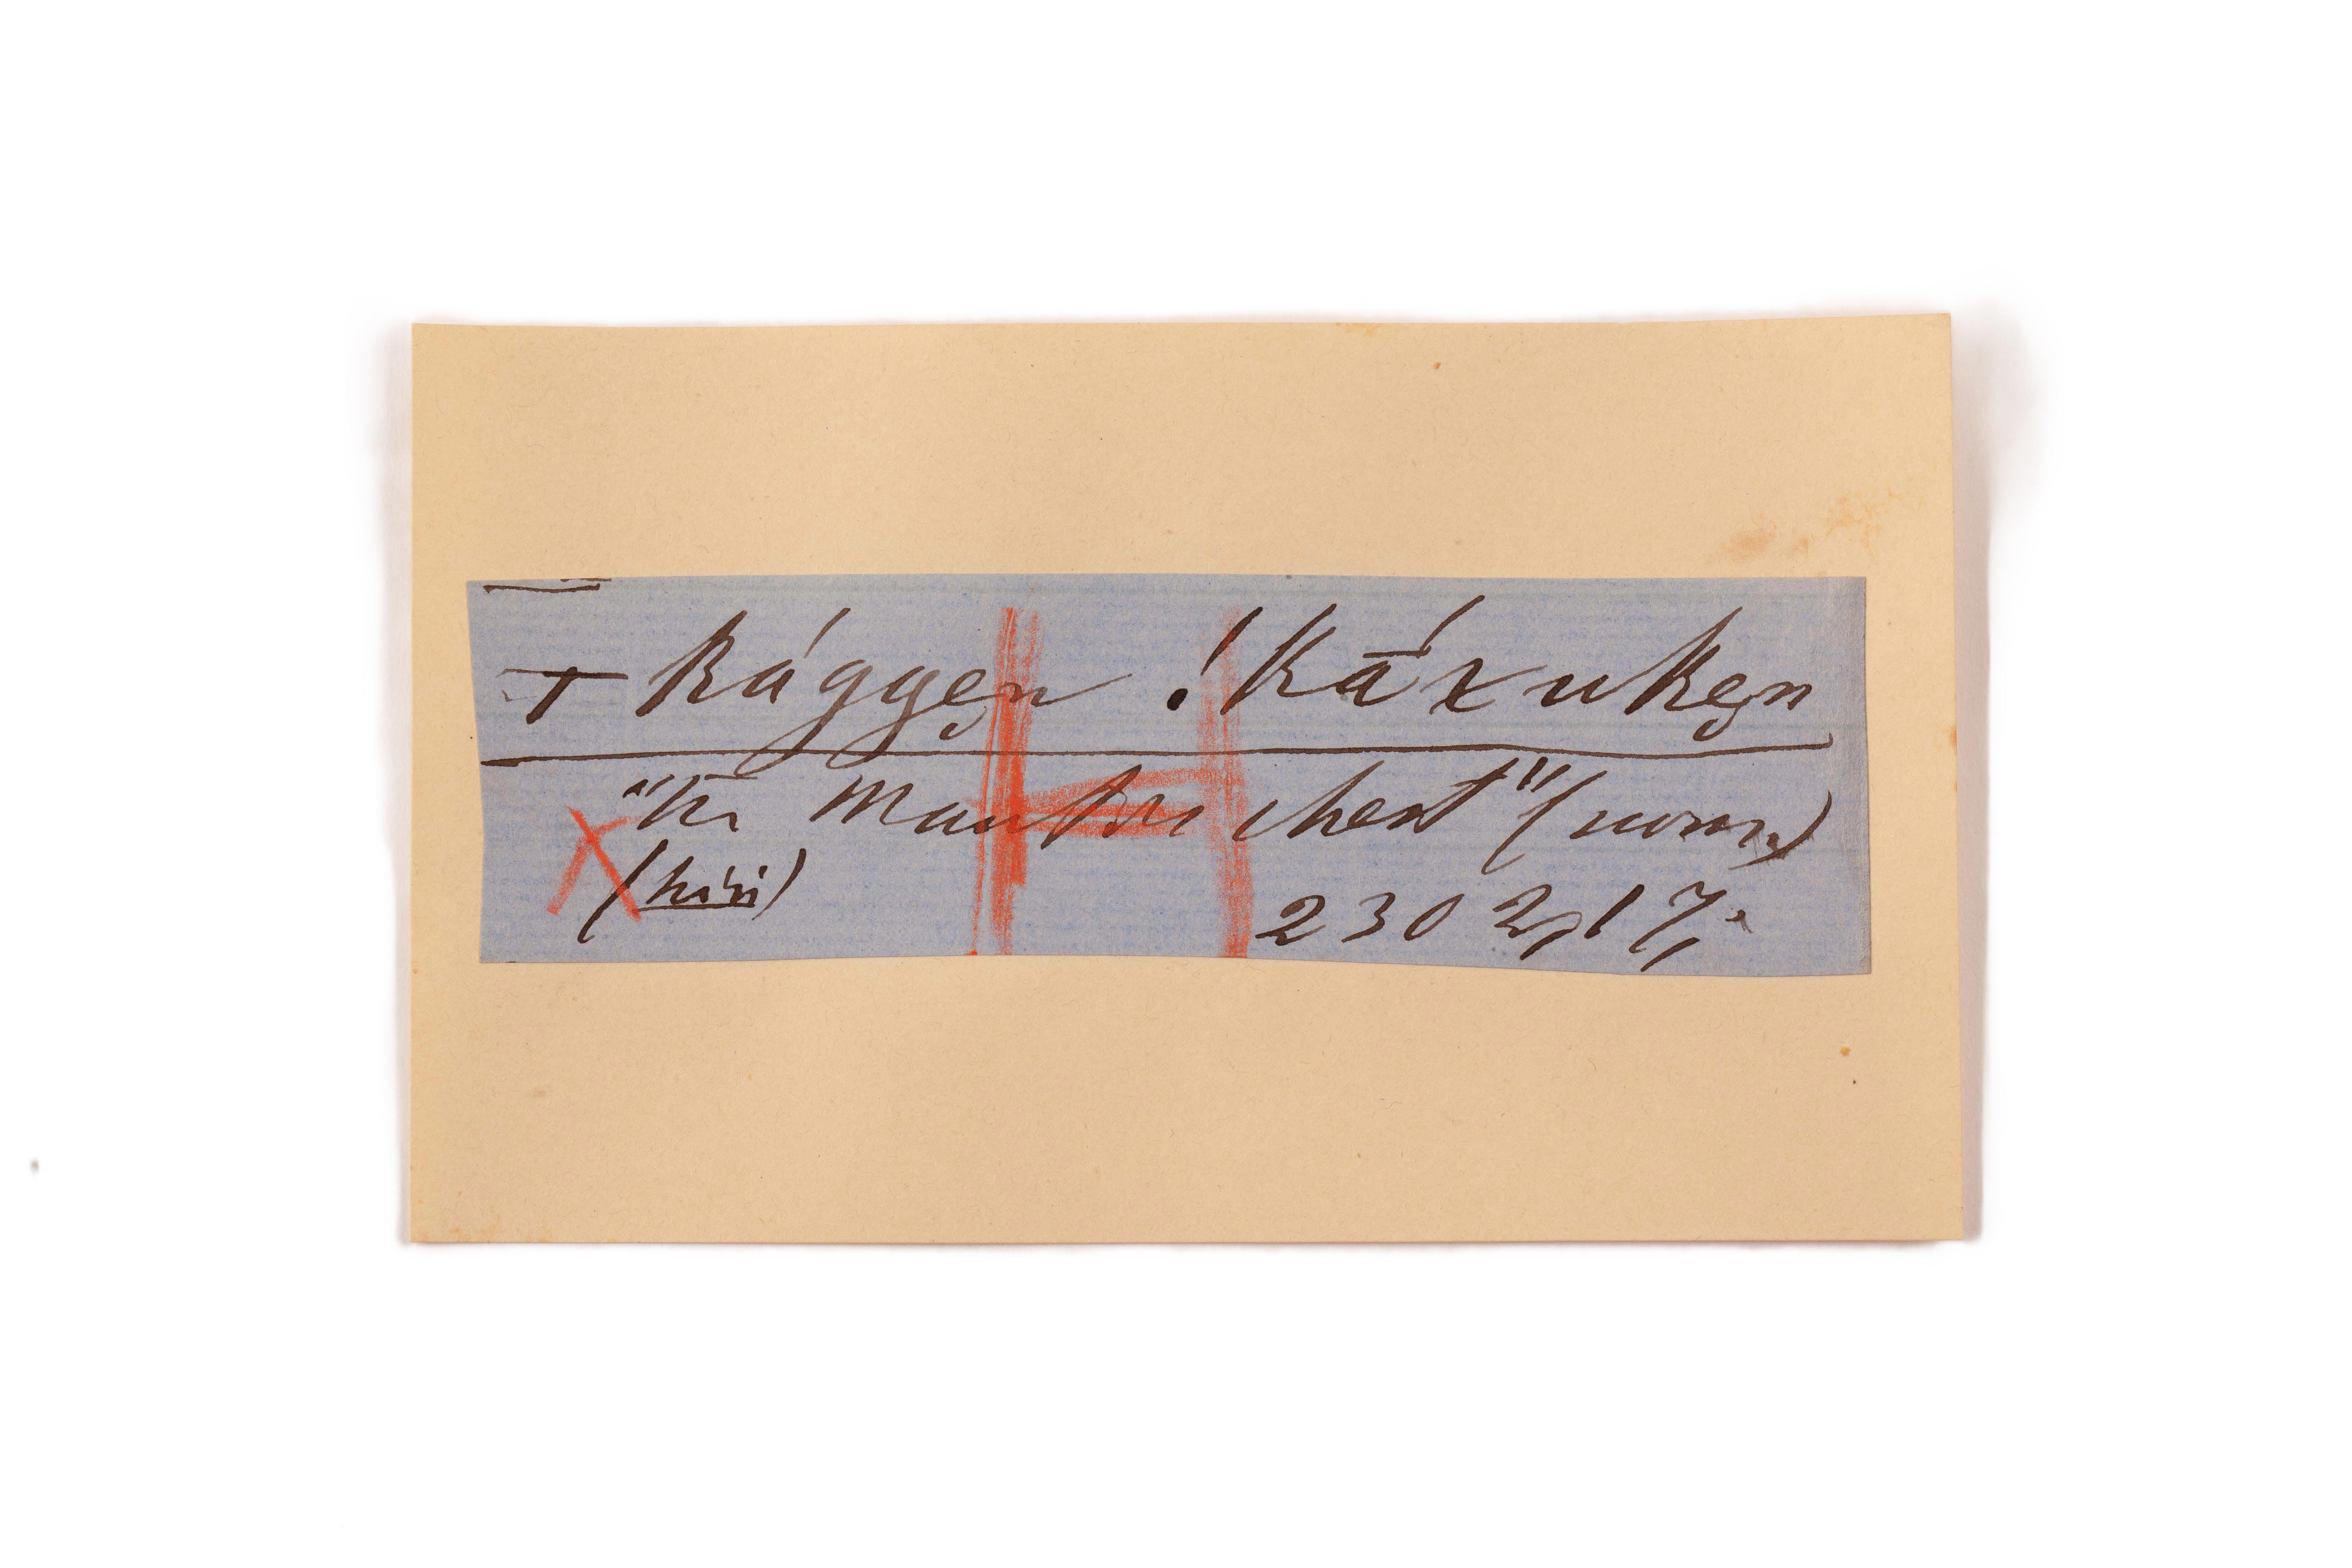 ⊤ kággen !kā́χuken
"The Mantis' chest" (worn)
X (kúi)
H
2302, 17,